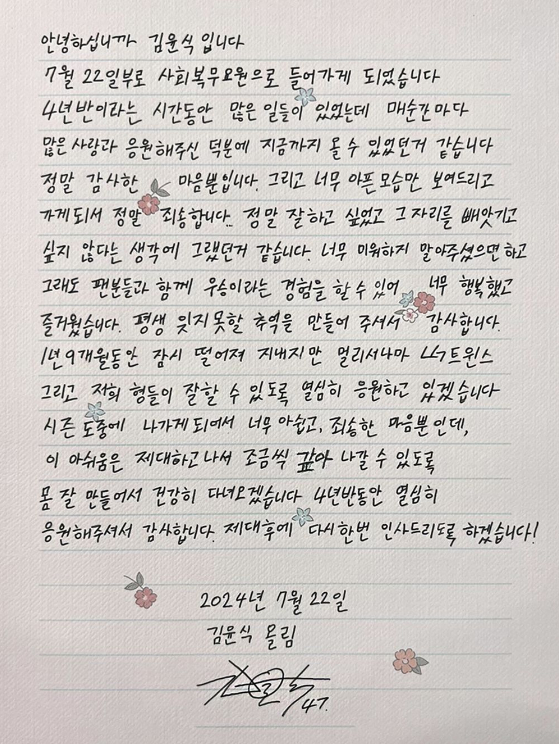 안녕하십니까 김윤식입니다
7월 22일부로 사회복무요원으로 들어가게 되었습니다
4년반이라는 시간동안 많은 일들이 있었는데 매순간마다
많은 사랑과 응원해주신 덕분에 지금까지 올 수 있었던거 같습니다
정말 감사한 마음뿐입니다. 그리고 너무 아픈모습만 보여드리고
가게되서 정말 죄송합니다.. 정말 잘하고 싶었고 그자리를 빼앗기고
싶지 않다는 생각에 그랬던거 같습니다. 너무 미워하지 말아주셨으면하고
그래도 팬분들과 함께 우승이라는 경험을 할 수 있어 너무 행복했고
즐거웠습니다. 평생 잊지못할 추억을 만들어 주셔서 감사합니다.
1년9개월동안 잠시 떨어져 지내지만 멀리서나마 LG트윈스
그리고 저희 형들이 잘할 수 있도록 열심히 응원하고 있겠습니다
시즌 도중에 나가게되어서 너무 아쉽고, 죄송한 마음뿐인데,
이 아쉬움은 제대하고나서 조금씩 갚아 나갈 수 있도록
몸 잘 만들어서 건강히 다녀오겠습니다 4년반동안 열심히
응원해주셔서 감사합니다. 제대후에 다시한번 인사드리도록 하겠습니다!
2024년 7월 22일
김윤식 올림
47.